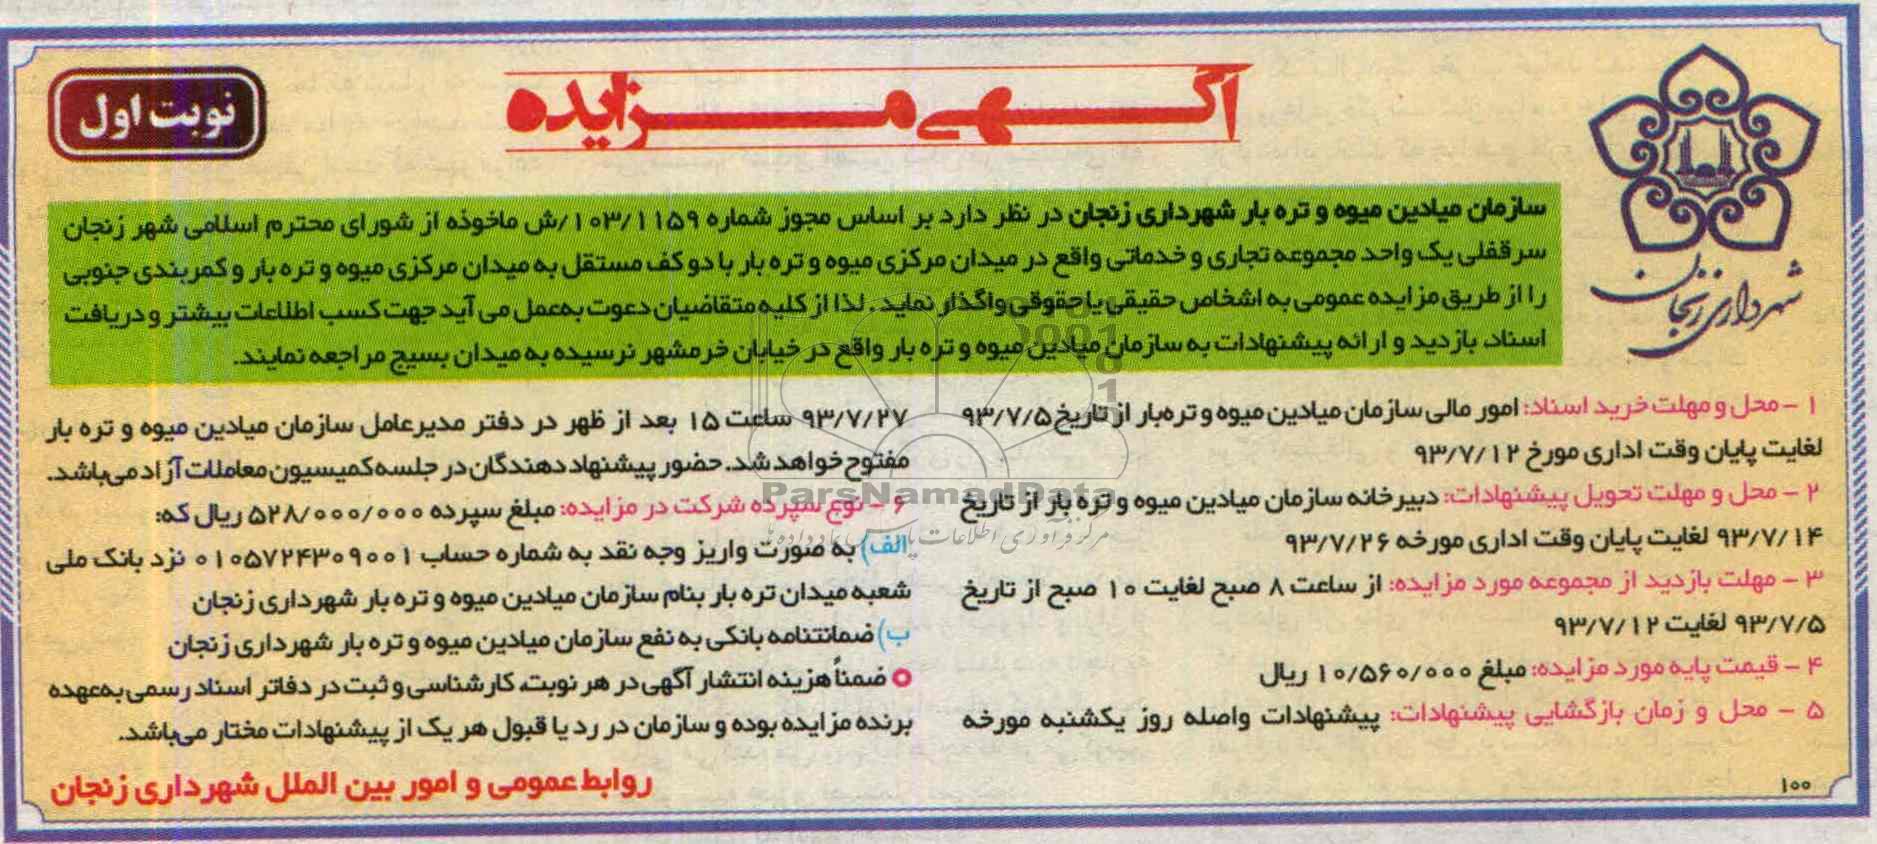 آگهی مزایده
نوبت اول
شهرداری زنجان
سازمان میادین میوه و تره بار شهرداری زنجان در نظر دارد بر اساس مجوز شماره ۱۰۳/۱۱۵۹/ش ماخوذه از شورای محترم اسلامی شهر زنجان
سرقفلی یک واحد مجموعه تجاری و خدماتی واقع در میدان مرکزی میوه و تره بار با دو کف مستقل به میدان مرکزی میوه و تره بار و کمربندی جنوبی
را از طریق مزایده عمومی به اشخاص حقیقی یا حقوقی واگذار نماید. لذا از کلیه متقاضیان دعوت به‌عمل می آید جهت کسب اطلاعات بیشتر و دریافت
اسناد، بازدید و ارائه پیشنهادات به سازمان میادین میوه و تره بار واقع در خیابان خرمشهر نرسیده به میدان بسیج مراجعه نمایند.
۱ - محل و مهلت خرید اسناد: امور مالی سازمان میادین میوه و تره‌بار از تاریخ ۹۳/۷/۵
لغایت پایان وقت اداری مورخ ۹۳/۷/۱۲
۲ - محل و مهلت تحویل پیشنهادات: دبیرخانه سازمان میادین میوه و تره بار از تاریخ
۹۳/۷/۱۴ لغایت پایان وقت اداری مورخه ۹۳/۷/۲۶
۳ - مهلت بازدید از مجموعه مورد مزایده: از ساعت ۸ صبح لغایت ۱۰ صبح از تاریخ
۹۳/۷/۵ لغایت ۹۳/۷/۱۲
۴ - قیمت پایه مورد مزایده: مبلغ ۱۰/۵۶۰/۰۰۰ ریال
۵ - محل و زمان بازگشایی پیشنهادات: پیشنهادات واصله روز یکشنبه مورخه
۹۳/۷/۲۷ ساعت ۱۵ بعد از ظهر در دفتر مدیرعامل سازمان میادین میوه و تره بار
مفتوح خواهد شد. حضور پیشنهاد دهندگان در جلسه کمیسیون معاملات آزاد می‌باشد.
۶ - نوع سپرده شرکت در مزایده: مبلغ سپرده ۵۲۸/۰۰۰/۰۰۰ ریال که:
الف) به صورت واریز وجه نقد به شماره حساب ۰۱۰۵۷۲۴۳۰۹۰۰۱ نزد بانک ملی
شعبه میدان تره بار بنام سازمان میادین میوه و تره بار شهرداری زنجان
ب) ضمانتنامه بانکی به نفع سازمان میادین میوه و تره بار شهرداری زنجان
ضمناً هزینه انتشار آگهی در هر نوبت، کارشناسی و ثبت در دفاتر اسناد رسمی به‌عهده
برنده مزایده بوده و سازمان در رد یا قبول هر یک از پیشنهادات مختار می‌باشد.
روابط عمومی و امور بین الملل شهرداری زنجان
۱۰۰
ParsNamadData